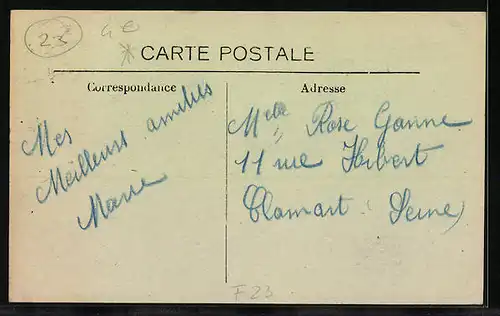 23
CARTE POSTALE
Correspondance
Adresse
Mes
Meilleures amitiés
Marie
Melle Rose Ganne
11 rue Hébert
Clamart (Seine)
F23